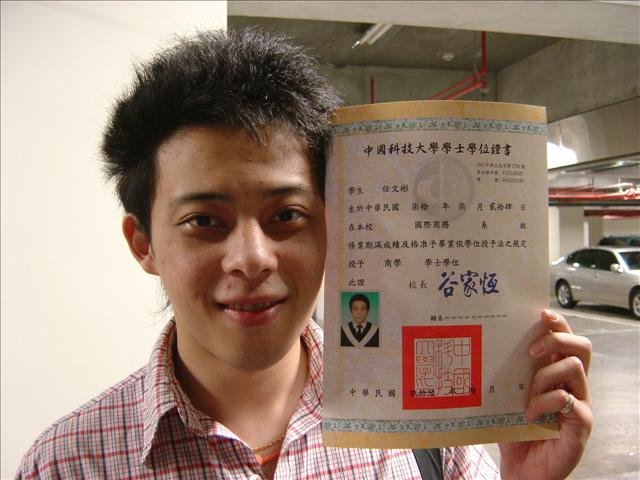 中國科技大學學士學位證書
學生 任文彬
生於中華民國 柒拾 年 柒 月 貳拾肆 日
在本校 國際商務 系 組
修業期滿成績及格准予畢業依學位授予法之規定
授予 商學 學士學位
此證 校長 谷家恆
輔系
中國科技大學
中華民國 玖拾陸 年 月 日